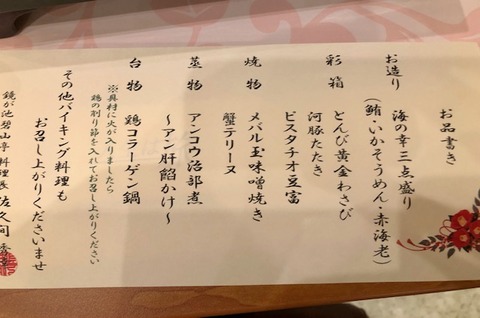 お品書き
お造り 海の幸三点盛り
(鮪・いかそうめん・赤海老)
彩箱 とんび黄金わさび
河豚たたき
ピスタチオ豆富
焼物 メバル玉味噌焼き
蟹テリーヌ
蒸物 アンコウ治部煮
〜アン肝餡かけ〜
台物 鶏コラーゲン鍋
※具材に火が入りましたら
鶏の削り節を入れてお召し上がりください
その他バイキング料理も
お召し上がりくださいませ
鏡が池碧山亭 料理長 佐久間